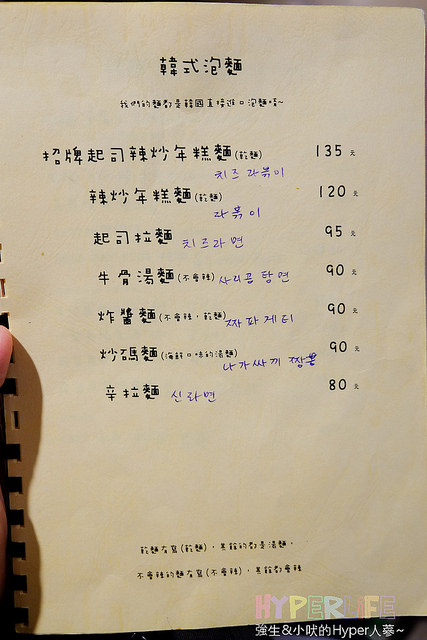 韓式泡麵
我們的麵都是韓國直接進口泡麵唷~
招牌起司辣炒年糕麵(乾麵) 135元
치즈 라볶이
辣炒年糕麵(乾麵) 120元
라볶이
起司拉麵 치즈라면 95元
牛骨湯麵(不會辣) 사리곰탕면 90元
炸醬麵(不會辣,乾麵) 짜파게티 90元
炒碼麵(海鮮口味的湯麵) 90元
나가사끼 짬뽕
辛拉麵 신라면 80元
乾麵有寫(乾麵),其餘的都是湯麵。
不會辣的麵有寫(不會辣),其餘都會辣
HYPERLIFE
強生&小吠的Hyper人蔘~